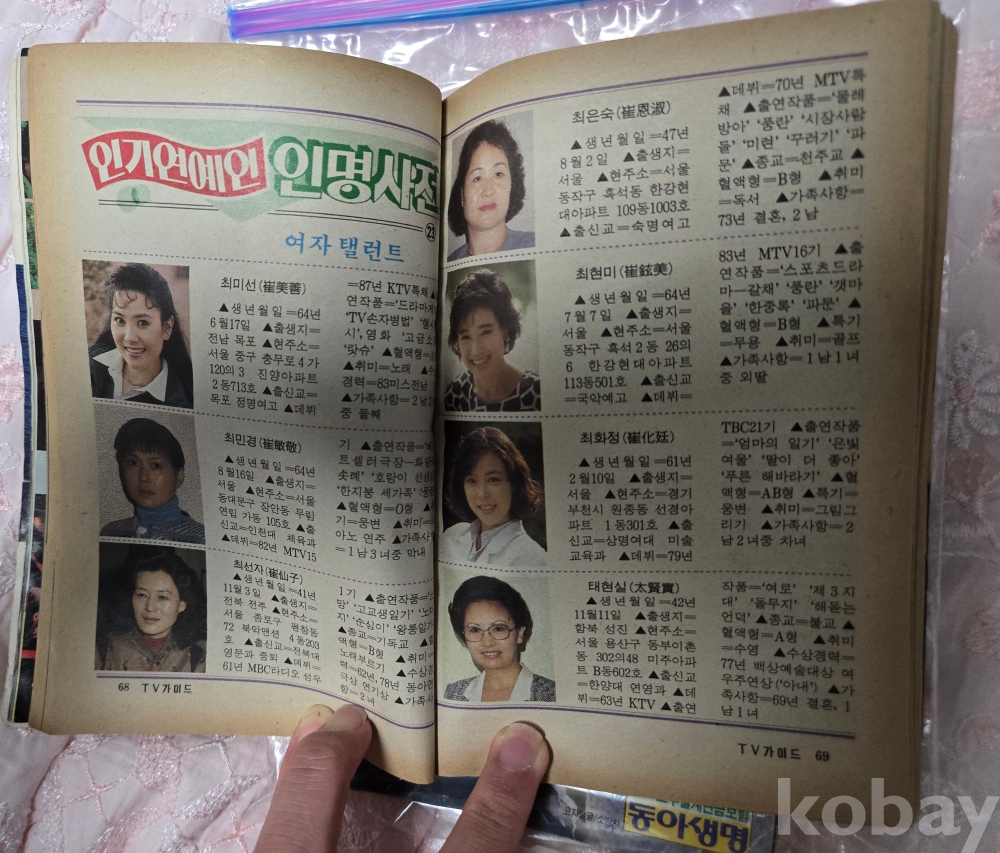 인기연예인 인명사전
㉑
여자 탤런트
최미선(崔美善)
▲생년월일=64년
6월17일 ▲출생지=
전남 목포 ▲현주소=
서울 중구 충무로4가
120의3 진양아파트
2동713호 ▲출신교=
목포 정명여고 ▲데뷔
=87년 KTV특채
연작품='드라마게
'TV손자병법' '형사
시', 영화 '고금소
'랏슈' ▲혈액형=
▲취미=노래
경력=83미스전남
▲가족사항=2남
중 둘째
최민경(崔敏敬)
▲생년월일=64년
8월16일 ▲출생지=
서울 ▲현주소=서울
동대문구 장안동 무림
연립 가동 105호 ▲출
신교=인천대 체육과
▲데뷔=82년 MTV15
기 ▲출연작품=
트셀러극장—화당
솟례' '호랑이 선생
'한지붕 세가족' '풍란
▲혈액형=O형
기=웅변 ▲취미=
아노 연주 ▲가족사
=1남3녀중 막내
최선자(崔仙子)
▲생년월일=41년
11월3일 ▲출생지=
전북 전주 ▲현주소=
서울 종로구 평창동
72 북악맨션 4동203
호 ▲출신교=전북대
영문과 중퇴 ▲데뷔=
61년 MBC라디오 성우
1기 ▲출연작품=
망' '고교생일기' '노다
지' '순심이' '왕룽일가
▲종교=기독교
액형=B형 ▲취미=
노래부르기 ▲수상경
력=62년, 78년 동아연
극상 연기상 ▲가족사
항=2녀
68 TV가이드
최은숙(崔恩淑)
▲생년월일=47년
8월2일 ▲출생지=
서울 ▲현주소=서울
동작구 흑석동 한강현
대아파트 109동1003호
▲출신교=숙명여고
▲데뷔=70년 MTV특
채 ▲출연작품='물레
방아' '풍란' '시장사람
들' '미련' '꾸러기' '파
문' ▲종교=천주교 ▲
혈액형=B형 ▲취미
=독서 ▲가족사항=
73년 결혼, 2남
최현미(崔鉉美)
▲생년월일=64년
7월7일 ▲출생지=
서울 ▲현주소=서울
동작구 흑석2동 26의
6 한강현대아파트
113동501호 ▲출신교
=국악예고 ▲데뷔=
83년 MTV16기 ▲출
연작품='스포츠드라
마—갈채' '풍란' '갯마
을' '한중록' '파문' ▲
혈액형=B형 ▲특기
=무용 ▲취미=골프
▲가족사항=1남1녀
중 외딸
최화정(崔化廷)
▲생년월일=61년
2월10일 ▲출생지=
서울 ▲현주소=경기
부천시 원종동 선경아
파트 1동301호 ▲출
신교=상명여대 미술
교육과 ▲데뷔=79년
TBC21기 ▲출연작품
='엄마의 일기' '은빛
여울' '딸이 더 좋아'
'푸른 해바라기' ▲혈
액형=AB형 ▲특기=
웅변 ▲취미=그림그
리기 ▲가족사항=2
남2녀중 차녀
태현실(太賢實)
▲생년월일=42년
11월11일 ▲출생지=
함북 성진 ▲현주소=
서울 용산구 동부이촌
동 302의48 미주아파
트 B동602호 ▲출신교
=한양대 연영과 ▲데
뷔=63년 KTV ▲출연
작품='여로' '제3지
대' '돌무지' '해돋는
언덕' ▲종교=불교 ▲
혈액형=A형 ▲취미
=수영 ▲수상경력=
77년 백상예술대상 여
우주연상('아내') ▲가
족사항=69년 결혼, 1
남1녀
TV가이드 69
동아생명
kobay